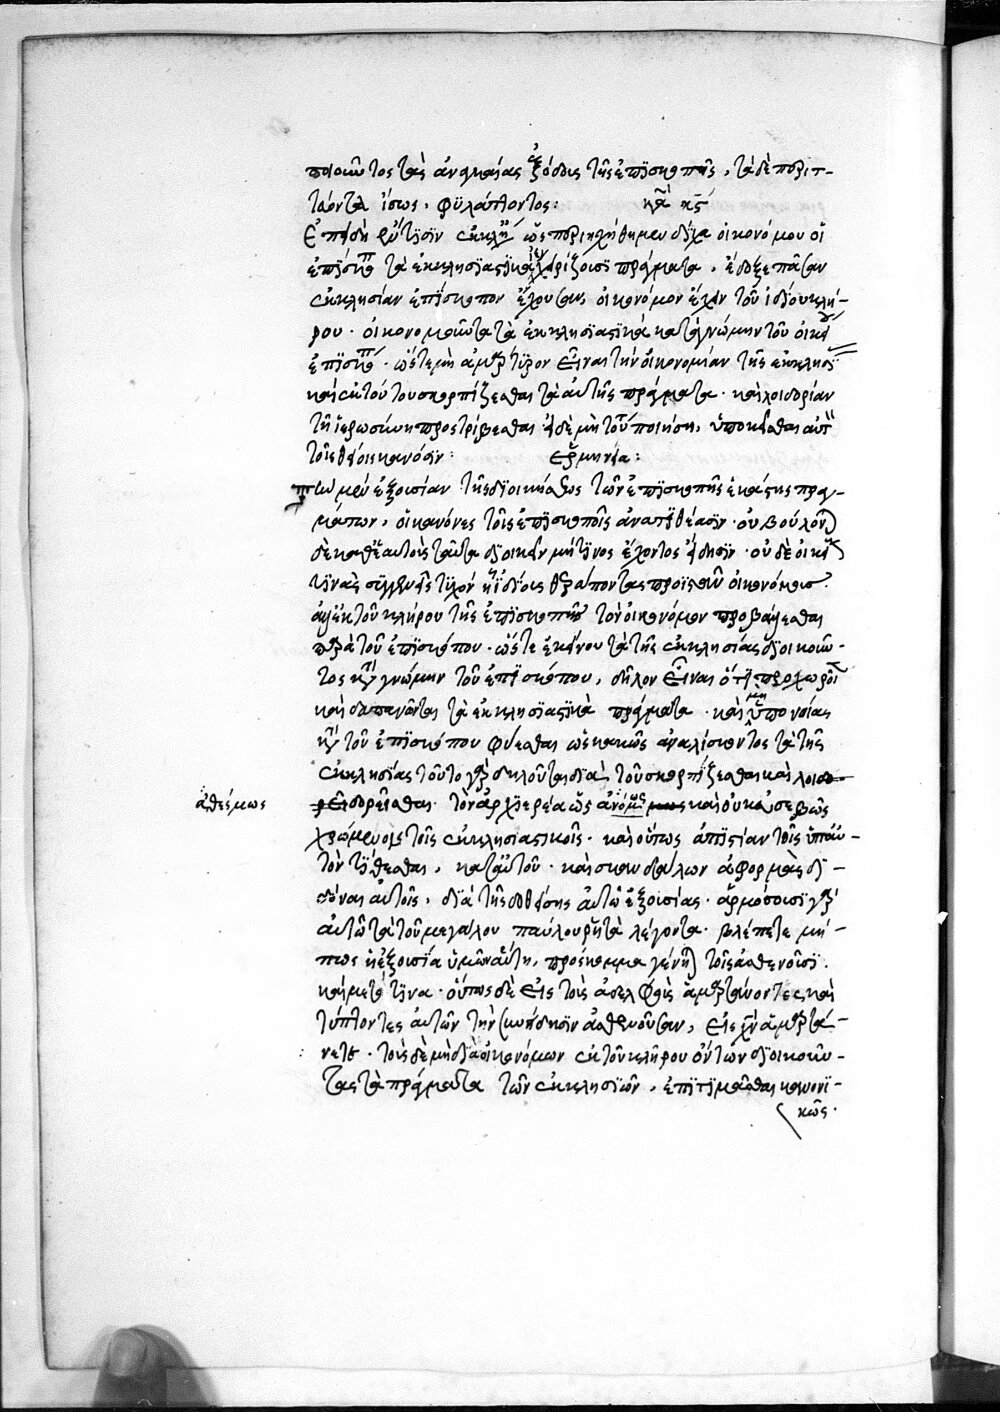 ποιοῦντος τὰς ἀναγκαίας ἐξόδους τῆς ἐπισκοπῆς, τὰ δὲ περιτ-
τεύοντα ἴσως φυλάττοντος: κα κς
Ἐπειδὴ ἔν τισιν ἐκκλη ὡς περιηχήθημεν δίχα οἰκονόμου οἱ
ἐπίσκο τὰ ἐκκλησιαστικὰ χειρίζουσι πράγματα, ἔδοξε πᾶσαν
ἐκκλησίαν ἐπίσκοπον ἔχουσαν, οἰκονόμον ἔχειν τοῦ ἰδίου κλή-
ρου. οἰκονομοῦντα τὰ ἐκκλησιαστικὰ κατὰ γνώμην τοῦ οἰκεί
ἐπισκο. ὥστε μὴ ἀμάρτυρον εἶναι τὴν οἰκονομίαν τῆς ἐκκλησι
καὶ ἐκ τούτου σκορπίζεσθαι τὰ αὐτῆς πράγματα. καὶ λοιδορίαν
τῇ ἱερωσύνῃ προστρίβεσθαι. εἰ δὲ μὴ τοῦ ποιήσῃ, ὑποκεῖσθαι αὐτ
τοῖς θείοις κανόσιν: ἑρμηνεία:
Τὴν μὲν ἐξουσίαν τῆς διοικήσεως τῶν ἐπισκοπῆς ἑκάστης πραγ-
μάτων, οἱ κανόνες τοῖς ἐπισκόποις ἀνατιθέασιν. οὐ βούλον
δὲ καθ' ἑαυτοὺς ταῦτα διοικεῖν μή τινος ἔχοντος εἴδησιν. οὐδὲ οἰκεί
τινὰς συγγενεῖς τυχὸν ἢ ἰδίους θεράποντας προϊστᾶν οἰκονόμους.
ἀλλ' ἐκ τοῦ κλήρου τῆς ἐπισκοπῆς τὸν οἰκονόμον προβάλεσθαι
παρὰ τοῦ ἐπισκόπου. ὥστε ἐκείνου τὰ τῆς ἐκκλησίας διοικοῦν-
τος κατὰ γνώμην τοῦ ἐπισκόπου, δῆλον εἶναι ὅπη προχωροῖ
καὶ δαπανᾶται τὰ ἐκκλησιαστικὰ πράγματα. καὶ μὴ ὑπονοίας
κατὰ τοῦ ἐπισκόπου φύεσθαι ὡς κακῶς ἀναλίσκοντος τὰ τῆς
ἐκκλησίας τοῦτο γὰρ δηλοῦται διὰ τοῦ σκορπίζεσθαι καὶ λοιδο-
ρεῖσθαι τὸν ἀρχιερέα ὡς ἀνόμως καὶ οὐκ εὐσεβῶς
ἀθέσμως
χρώμενον τοῖς ἐκκλησιαστικοῖς. καὶ οὕπως ἀπιστίαν τοῖς ὑπ' αὐ-
τὸν τίθεσθαι, κατ' αὐτοῦ. καὶ σκανδάλων ἀφορμὰς δι-
δόναι αὐτοῖς, διὰ τῆς δοθείσης αὐτῷ ἐξουσίας. ἁρμόσουσι γὰρ
αὐτῷ τὰ τοῦ μεγάλου παύλου ῥητὰ λέγοντα. βλέπετε μή-
πως ἡ ἐξουσία ὑμῶν αὕτη, πρόσκομμα γένηται τοῖς ἀσθενοῦσι.
καὶ μετά τινα. οὕτως δὲ εἰς τοὺς ἀδελφοὺς ἁμαρτάνοντες καὶ
τύπτοντες αὐτῶν τὴν συνείδησιν ἀσθενοῦσαν, εἰς χν ἁμαρτά-
νετε. τοὺς δὲ μὴ διὰ οἰκονόμων ἐκ τοῦ κλήρου ὄντων διοικοῦν-
τας τὰ πράγματα τῶν ἐκκλησιῶν, ἐπιτιμᾶσθαι κανονι-
κῶς.